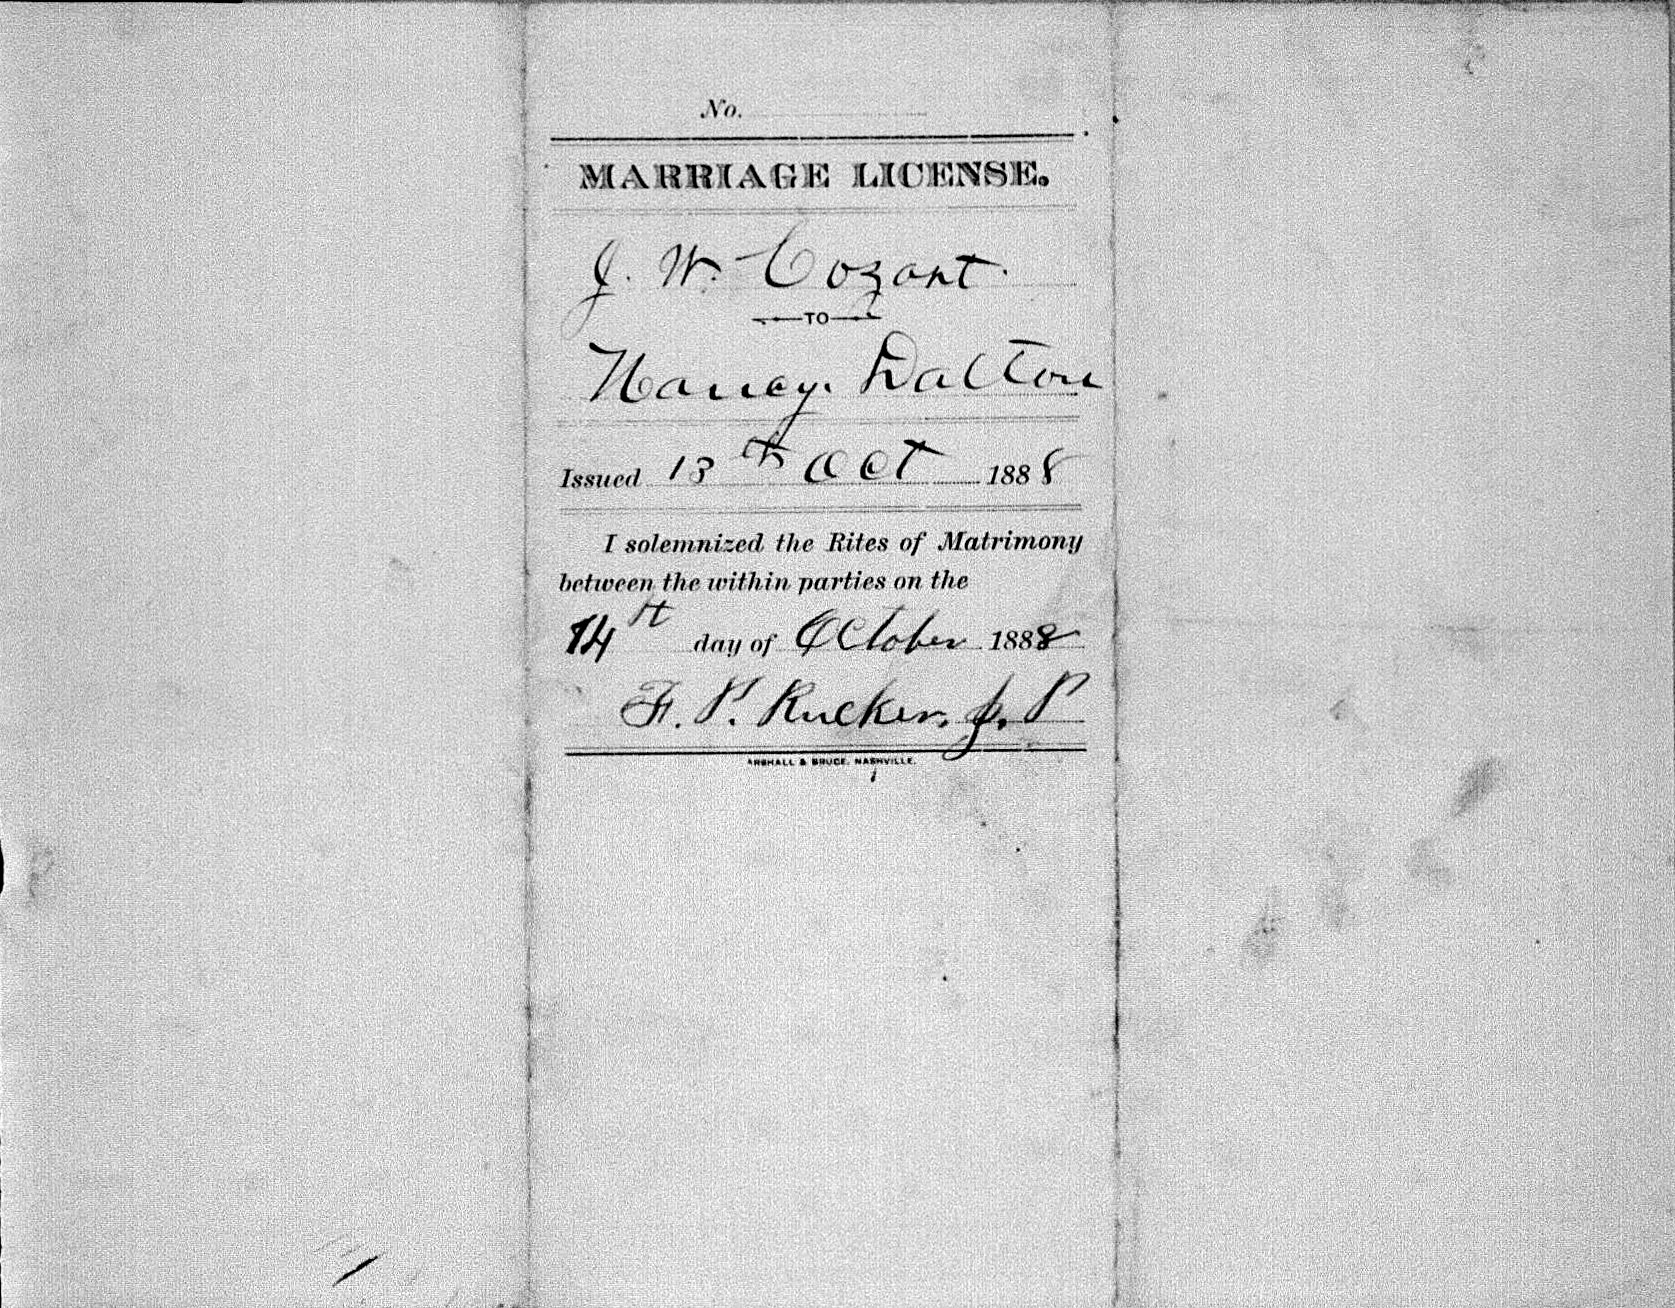 No.
MARRIAGE LICENSE.
J. W. Cozart
TO
Nancy. Dalton
Issued 13th Oct 1888
I solemnized the Rites of Matrimony
between the within parties on the
14th day of October 1888
F. P. Rucker, J. P
ARSHALL & BRUCE, NASHVILLE.